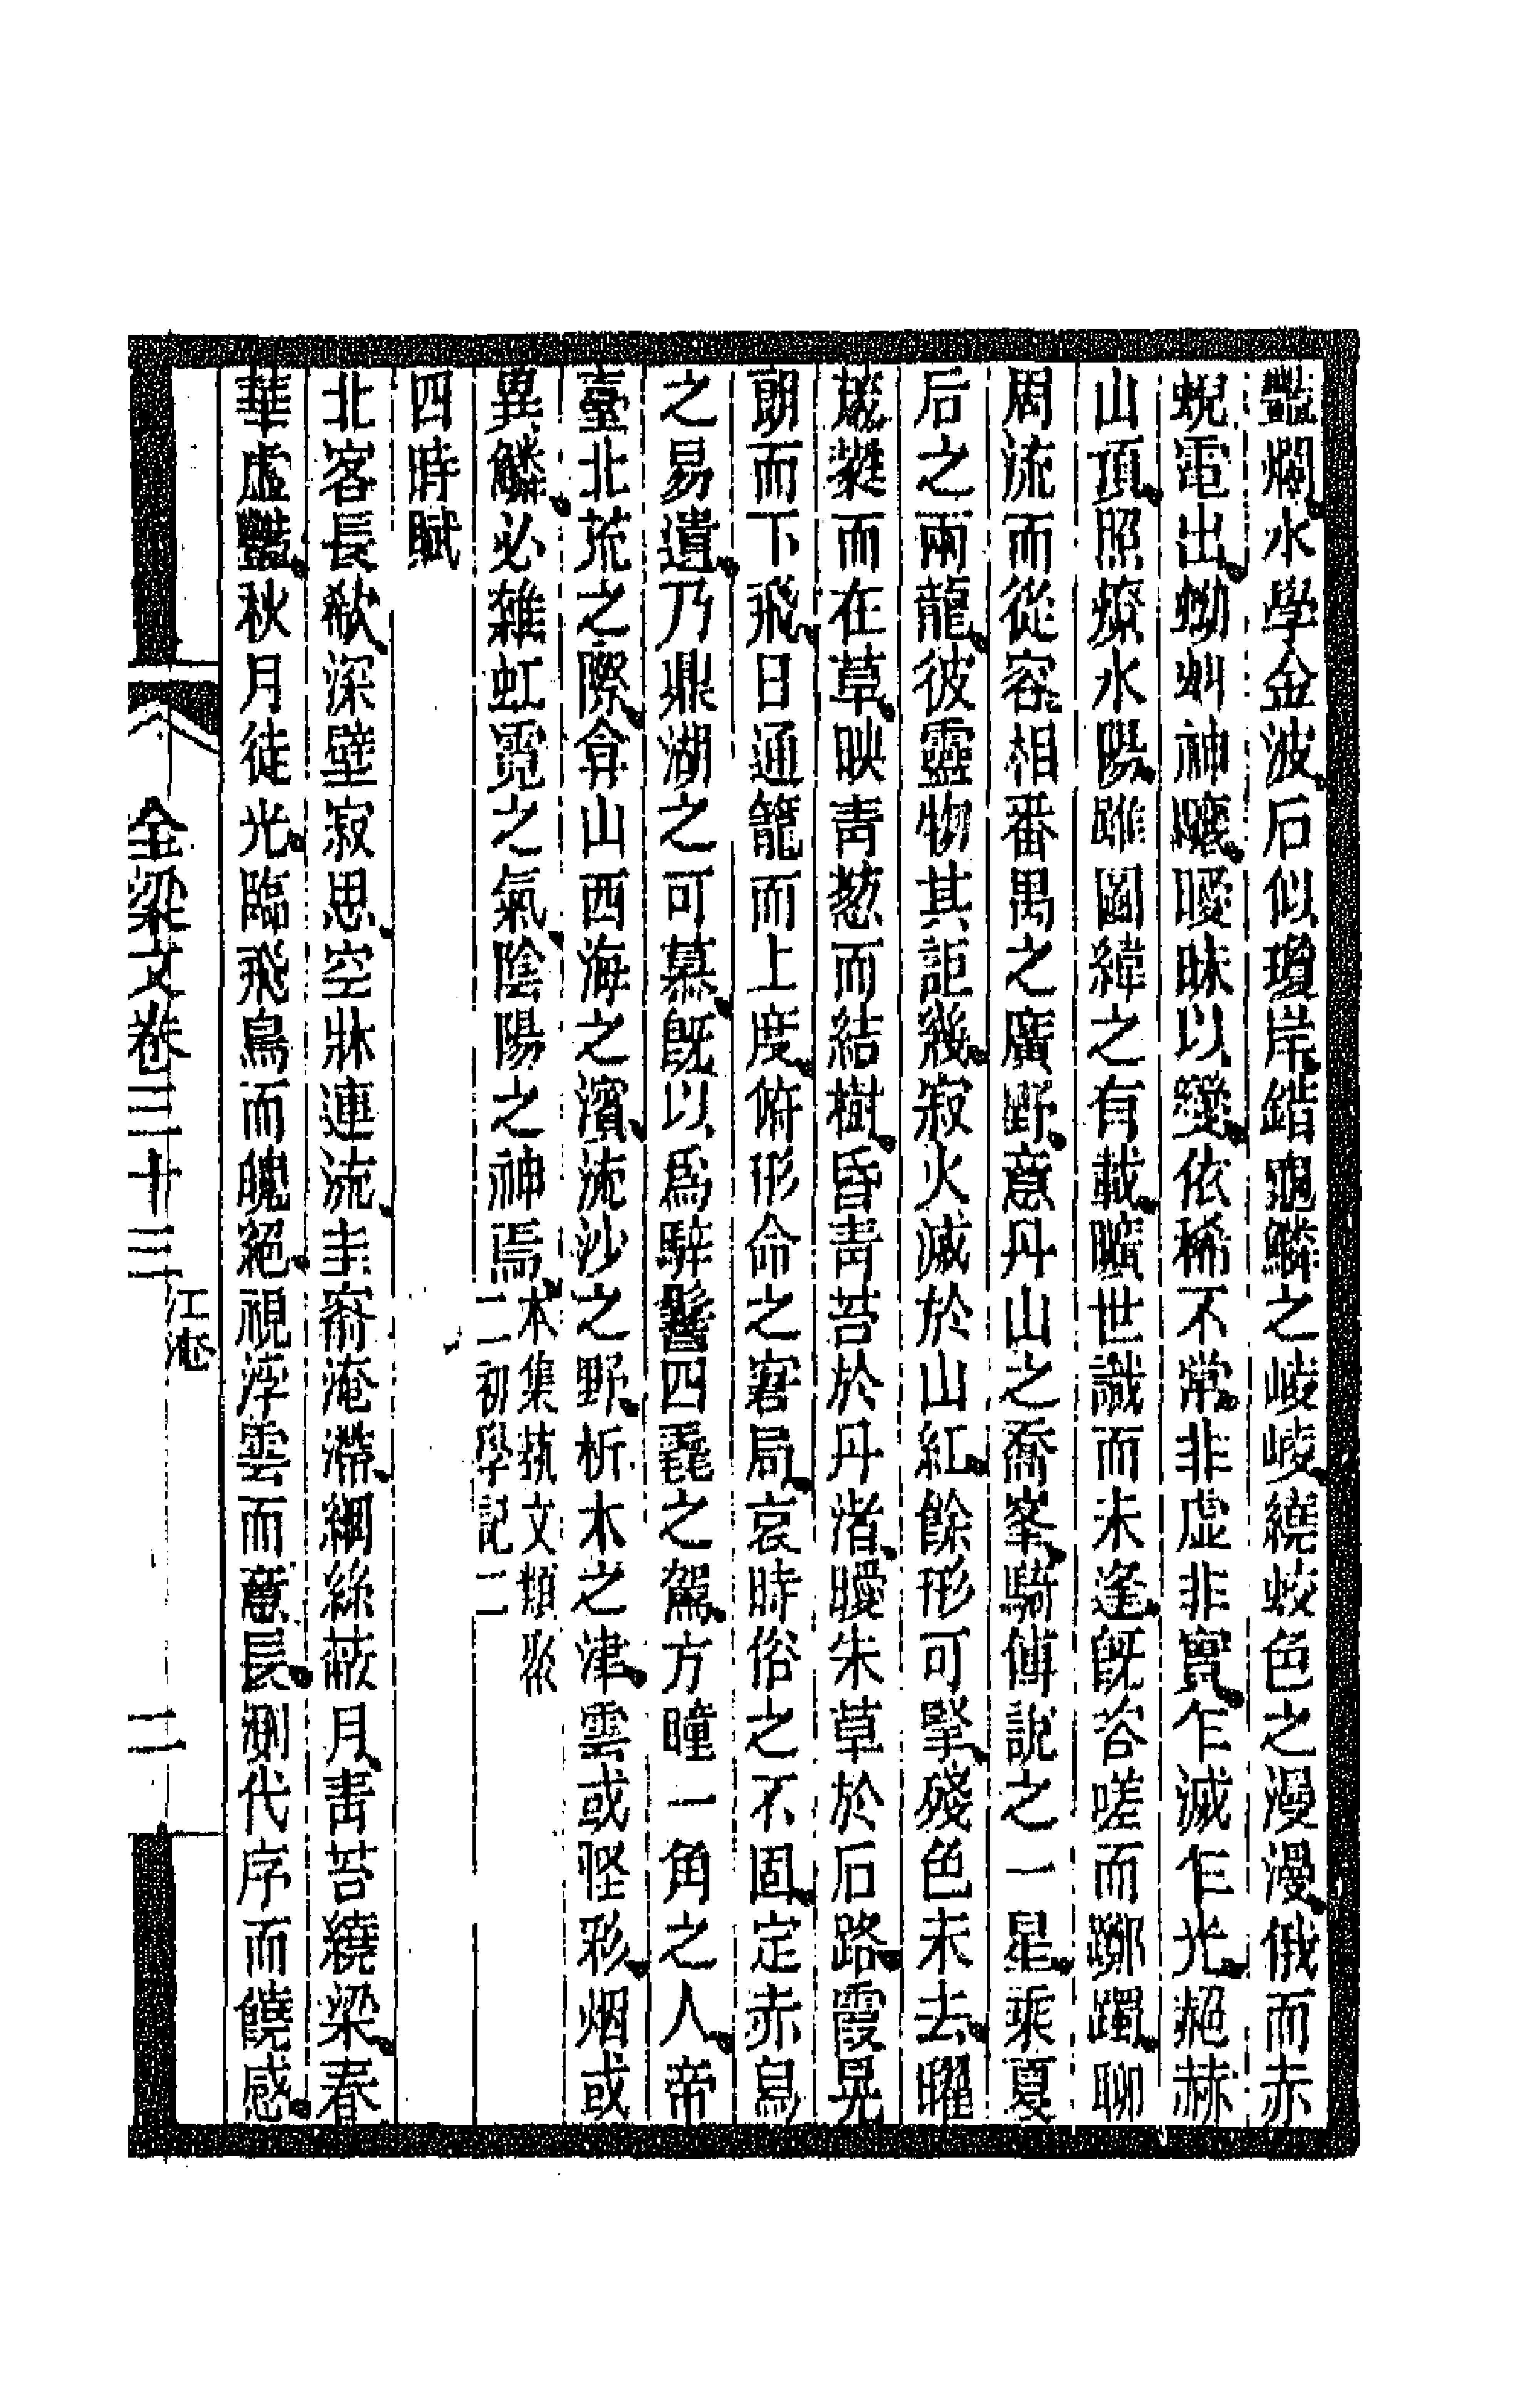 豔爛水學金波石似瓊岸錯龜鱗之崚崚繞蛟色之漫漫俄而赤
蜺電出蚴虯神驤曖昧以變依稀不常非虛非實乍滅乍光赩赫
山頂照燎水陽雖圖緯之有載曠世識而未逢既咨嗟而躑躅聊
周流而從容相番禺之廣野意丹山之喬峯騎傅說之一星乘夏
后之兩龍彼靈物其詎幾寂火滅於山紅餘形可擥殘色未去曜
葳蕤而在草映青蔥而結樹昏青苔於丹渚曖朱草於石路霞晃
朗而下飛日通籠而上度俯形命之窘局哀時俗之不固定赤舄
之易遺乃鼎湖之可慕旣以爲騂鬐四毳之駕方瞳一角之人帝
臺北荒之際弇山西海之濱流沙之野析木之津雲或怪彩烟或
異鱗必雜虹霓之氣陰陽之神焉本集藝文類聚
二初學記二
四時賦
北客長欷深壁寂思空牀連流圭窬淹滯網絲蔽月青苔繞梁春
華虛豔秋月徒光臨飛鳥而魄絕視浮雲而意長測代序而饒感
全梁文卷三十三 江淹 二